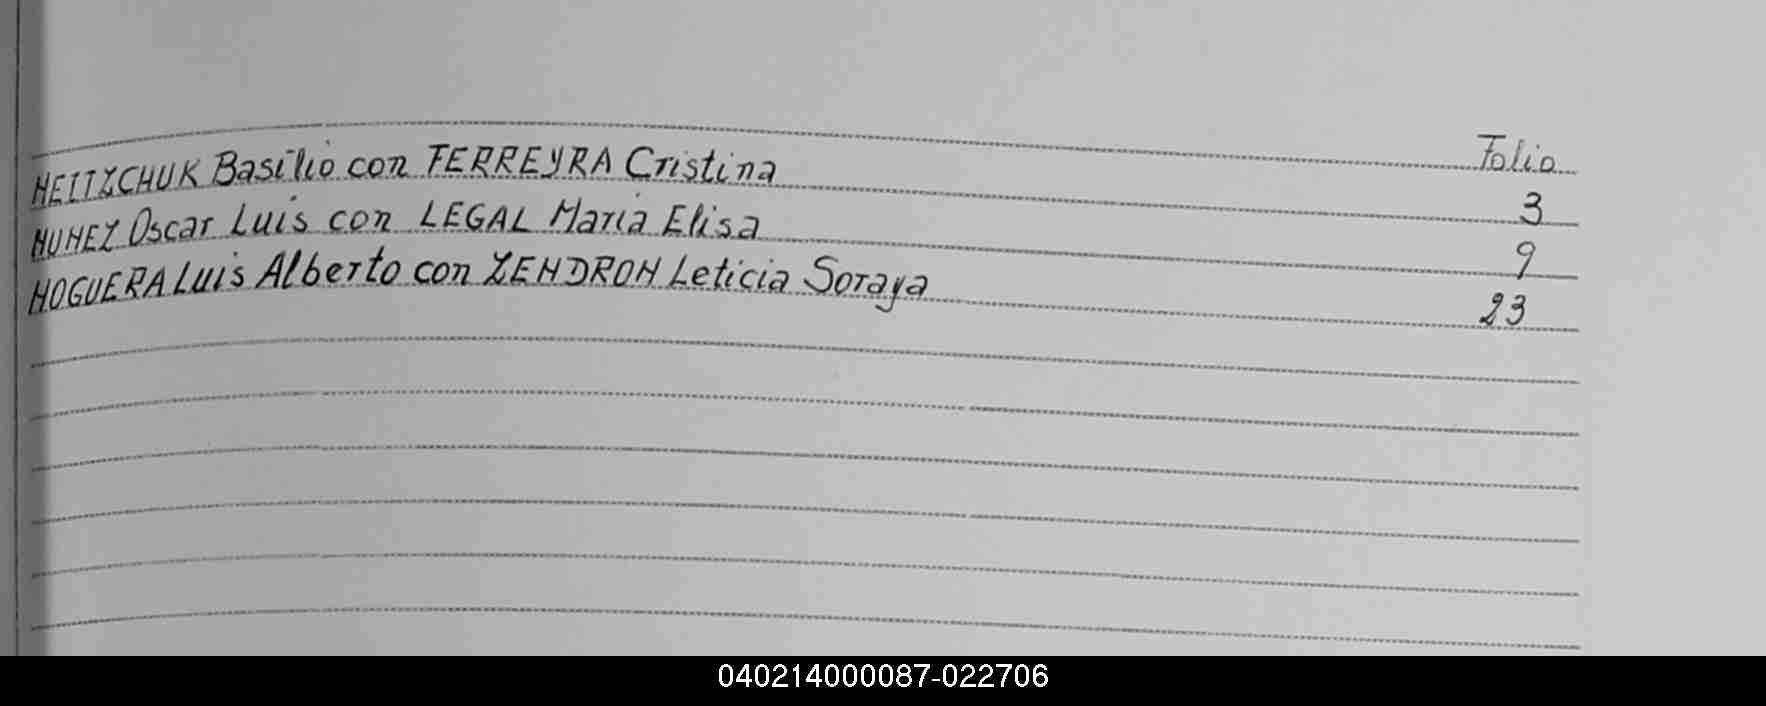 Folio
NEITZCHUK Basilio con FERREYRA Cristina 3
NUNEZ Oscar Luis con LEGAL Maria Elisa 9
NOGUERA Luis Alberto con ZENDRON Leticia Soraya 23
040214000087-022706